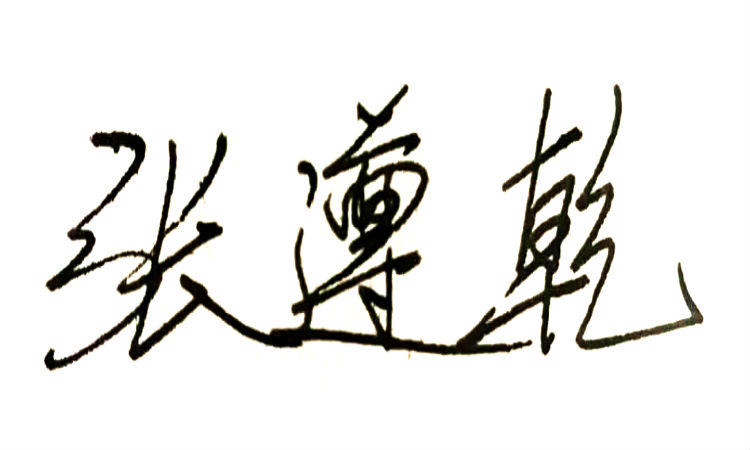 张遵乾